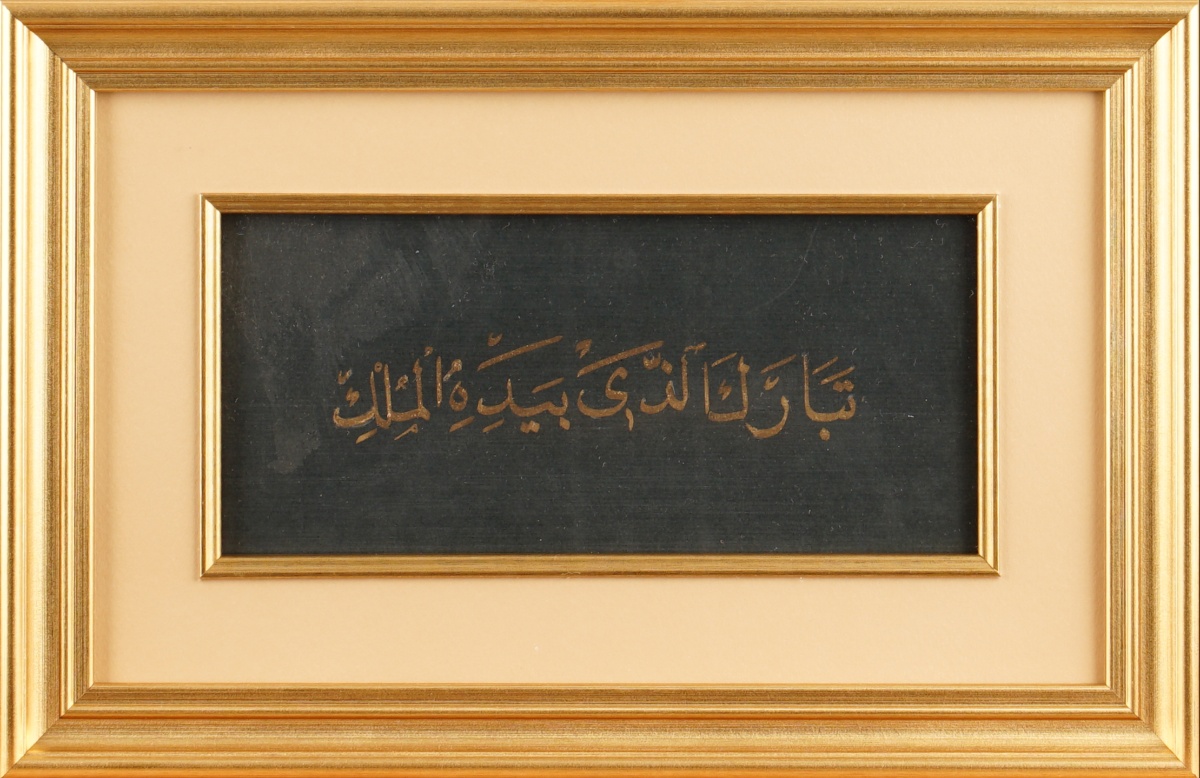 تَبَارَكَ الَّذِّى بِيَدِهِ الْمُلْكِ